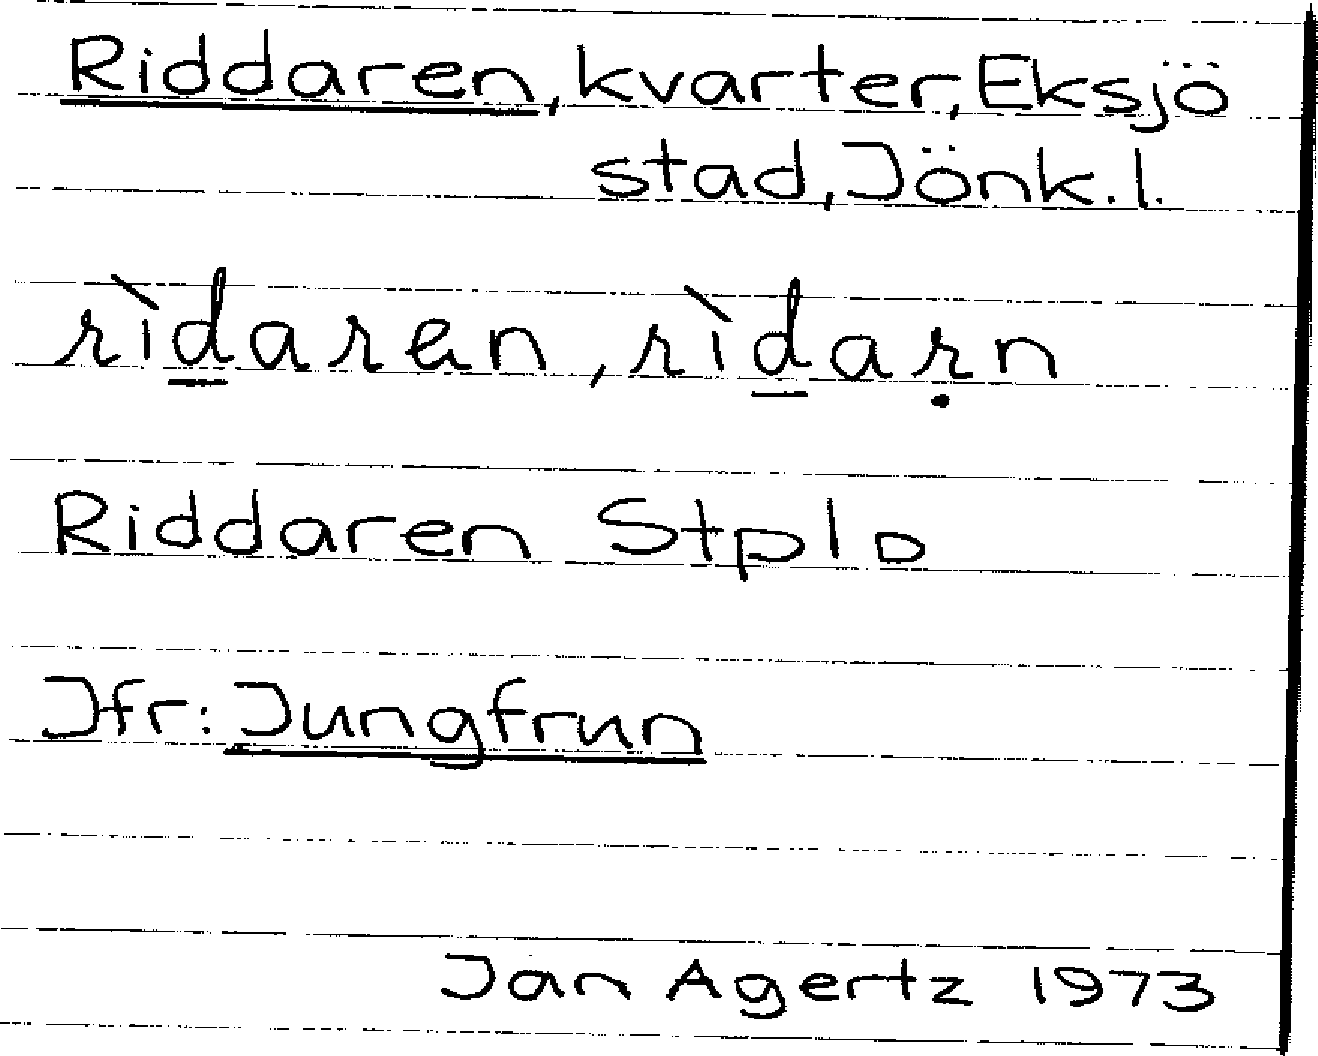 Riddaren, kvarter, Eksjö
stad, Jönk. l.
rìd̲aren, rìd̲aṛn
Riddaren Stplo
Jfr: Jungfrun
Jan Agertz 1973